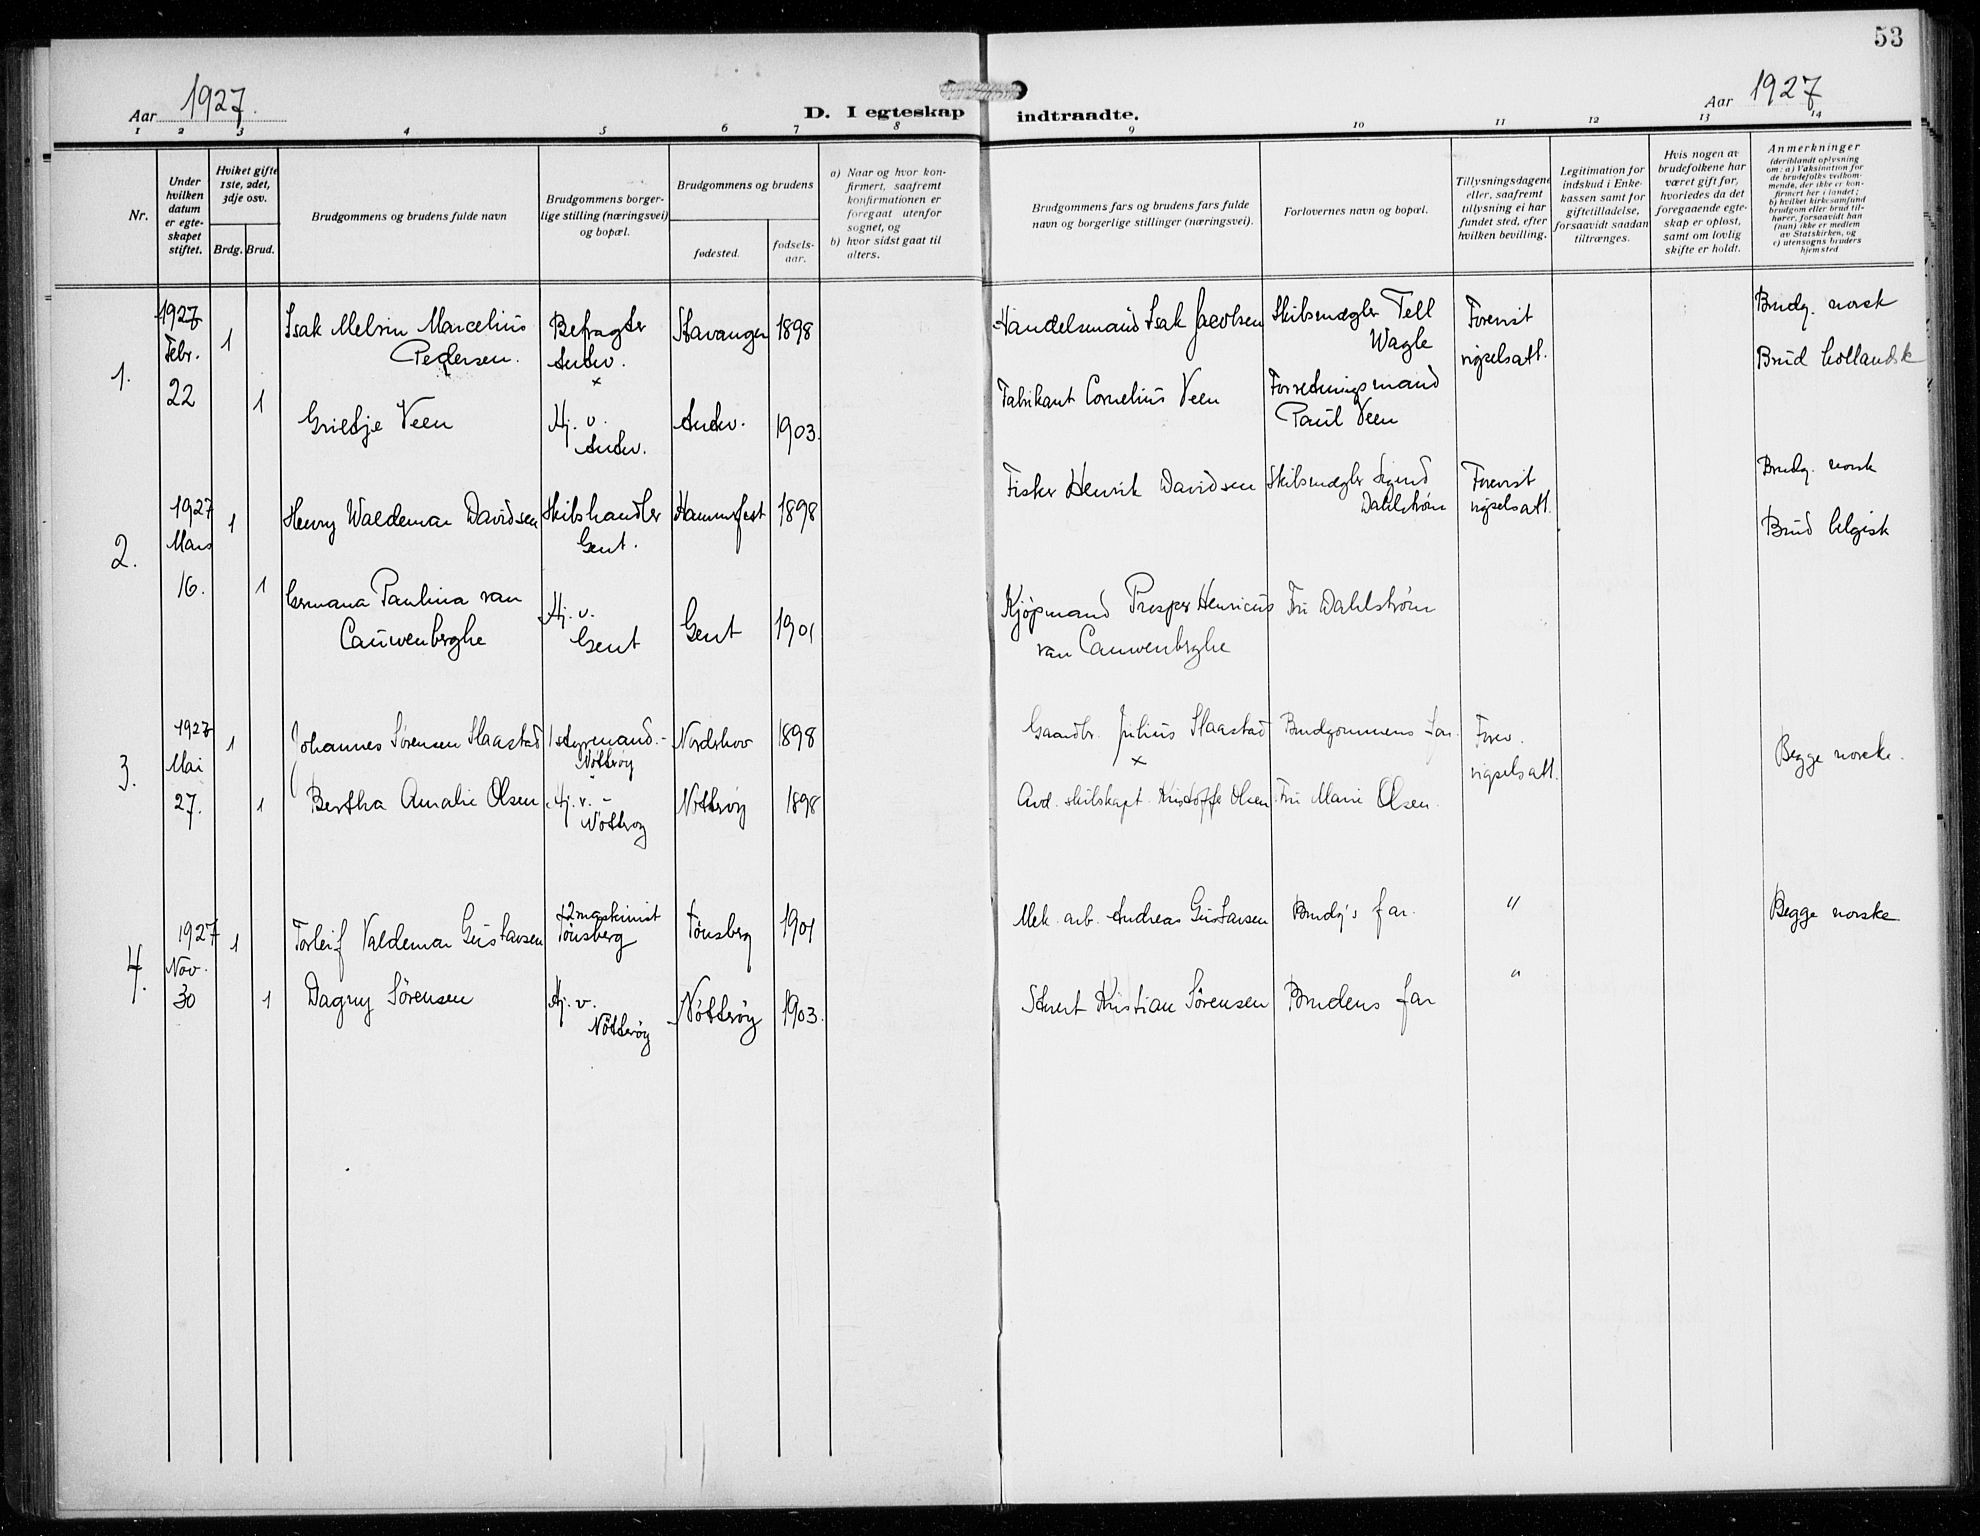 53
Aar 1927.
D. I egteskap indtraadte.
Aar 1927
1 2 3 4 5 6 7 8 9 10 11 12 13 14
Nr.
Under
hvilken
datum
er egte-
skapet
stiftet.
Hviket gifte
1ste, 2det,
3dje osv.
Brdg. Brud.
Brudgommens og brudens fulde navn
Brudgommens borger-
lige stilling (næringsvei)
og bopæl.
Brudgommens og brudens
fødested.
fødsels-
aar.
a) Naar og hvor kon-
firmert, saafremt
konfirmationen er
foregaat utenfor
sognet, og
b) hvor sidst gaat til
alters.
Brudgommens fars og brudens fars fulde
navn og borgerlige stillinger (næringsvei).
Forlovernes navn og bopæl.
Tillysningsdagene
eller, saafremt
tillysning ei har
fundet sted, efter
hvilken bevilling.
Legitimation for
indskud i Enke-
kassen samt for
giftetilladelse,
forsaavidt saadan
tiltrænges.
Hvis nogen av
brudefolkene har
været gift før,
hvorledes da det
foregaaende egte-
skap er opløst,
samt om lovlig
skifte er holdt.
Anmerkninger
(deriblandt oplysning
om: a) Vaksination for
de brudefolks vedkom-
mende, der ikke er kon-
firmert her i landet;
b) hvilket kirkesamfund
brudgom eller brud til-
hører, forsaavidt han
(hun) ikke er medlem
av Statskirken, og
c) utensogns bruders
hjemsted
1.
1927
Febr.
22
1
Isak Melvin Marcelius
Pedersen.
Befragter
Antw.
Stavanger
1898
Handelsmand Isak Jacobsen
Skibsmægler Tell
Wagle
Forevist
vigselsatt.
Brudg. norsk
Brud hollandsk
1
Grietje Veen
Hj. v.
Antw.
Antw.
1903.
Fabrikant Cornelius Veen
Forretningsmand
Paul Veen
2.
1927
Mars
16.
1
Henry Waldemar Davidsen
Skibshandler
Gent.
Hammerfest
1898
Fisker Henrik Davidsen
Skibsmægler Sigurd
Dahlstrøm
Forevist
vigselsatt.
Brudg. norsk
Brud belgisk
1
Germana Paulina van
Cauwenberghe
Hj. v.
Gent
Gent
1901
Kjøpmand Prosper Henricus
van Cauwenberghe
Fru Dahlstrøm
3.
1927
Mai
27.
1
Johannes Sørensen Slaastad
1 styrmand.-
Nøtterøy
Nordskov
1898
Gaardbr. Julius Slaastad
Brudgommens far.
Forev.
vigselsatt.
Begge norske.
1
Bertha Amalie Olsen
Hj. v. -
Nøtterøy
Nøtterøy
1898
Avd. skibskapt. Kristoffe Olsen
Fru Marie Olsen.
4.
1927
Nov.
30
1
Torleif Valdemar Gustavsen
2 maskinist
Tønsberg
Tønsberg
1901
Mek. arb. Andreas Gustavsen
Brudg's far.
"
Begge norske
1
Dagny Sørensen
Hj. v.
Nøtterøy
Nøtterøy
1903.
Stuert Kristian Sørensen
Brudens far
"